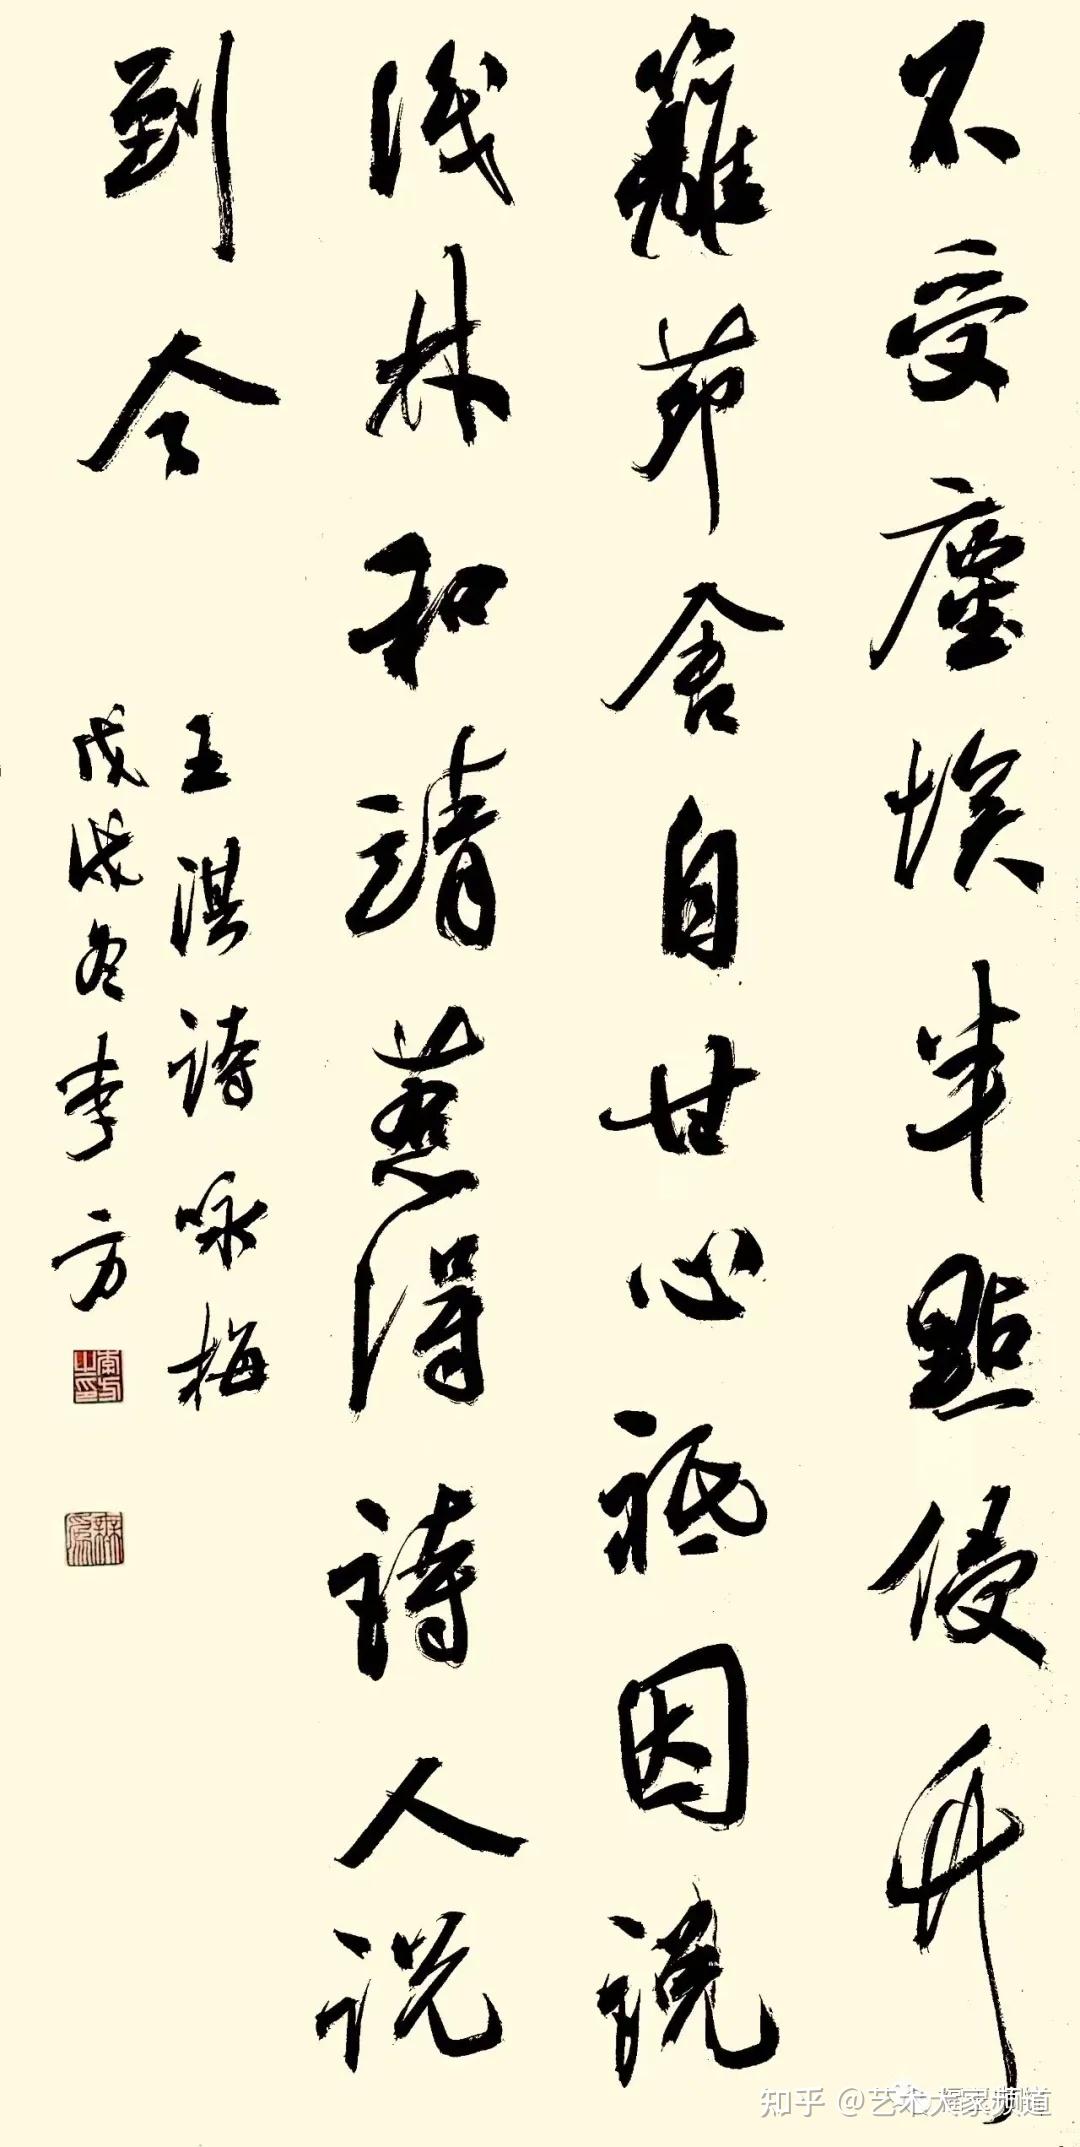 不受塵埃半點侵竹
籬茆舍自甘心祗因誤
識林和靖惹得詩人说
到今
王淇詩咏梅
戊戌冬李方
知乎 @艺术大家频道